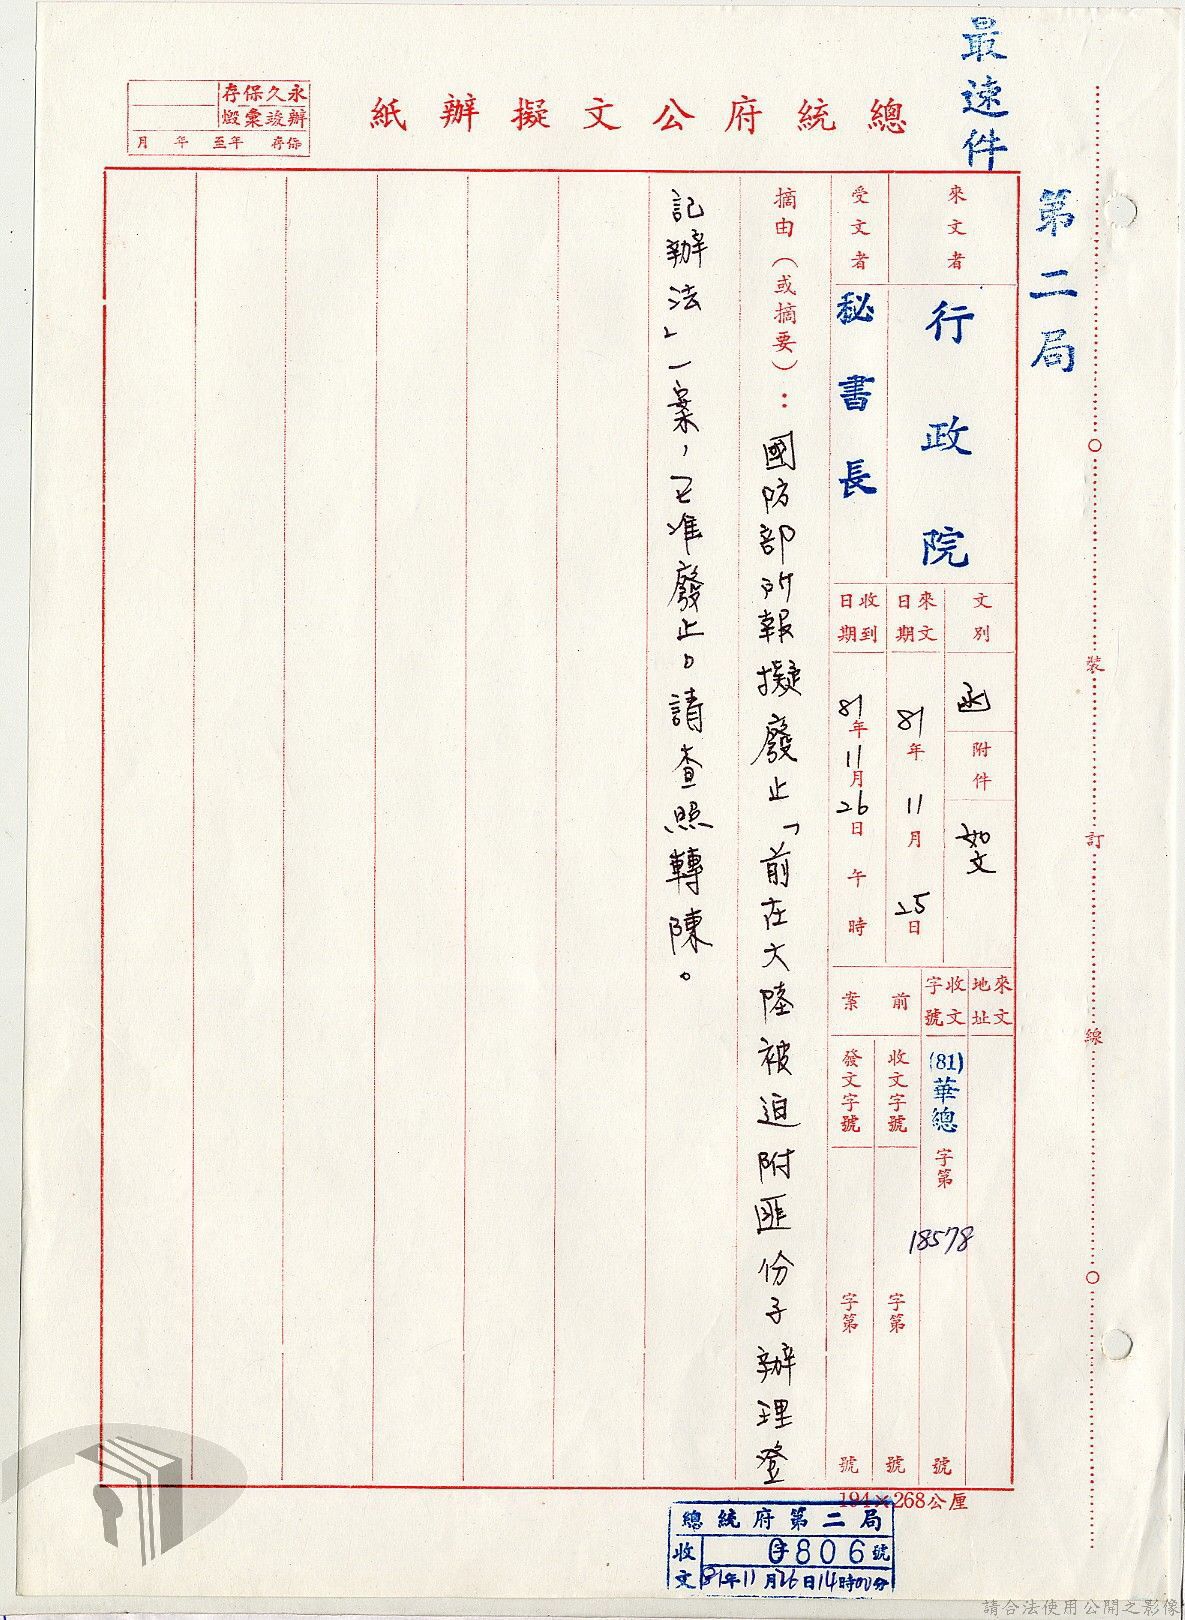 最速件
第二局
總統府公文擬辦紙
永久保存
辦竣彙燬
保存 年至 年 月
來文者
行政院
受文者
秘書長
文別
函
附件
如文
來文日期
81年11月25日
收到日期
81年11月26日 午 時
來文地址
收文字號
(81)華總字第18578號
前案
收文字號
字第 號
發文字號
字第 號
摘由(或摘要):國防部所報擬廢止「前在大陸被迫附匪份子辦理登
記辦法」一案,已准廢止。請查照轉陳。
裝
訂
線
194×268公厘
總統府第二局
收文
字806號
81年11月26日14時00分
請合法使用公開之影像